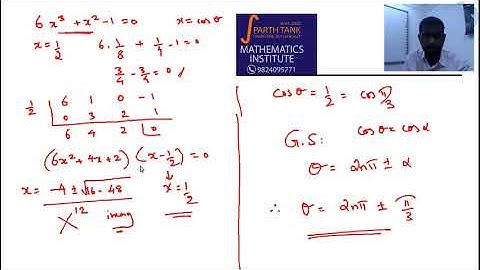 6x³ + x² - 1 = 0    x = cos θ
x = 1/2    6 · 1/8 + 1/4 - 1 = 0
3/4 - 3/4 = 0
1/2 | 6 1 0 -1
0 3 2 1
6 4 2 |0
(6x² + 4x + 2) (x - 1/2) = 0
x = -4 ± √16 - 48 / 12    x = 1/2
imag
PARTH TANK
MATHEMATICS
INSTITUTE
9824095771
cos θ = 1/2 = cos π/3
G.S: cos θ = cos α
θ = 2nπ ± α
∴ θ = 2nπ ± π/3